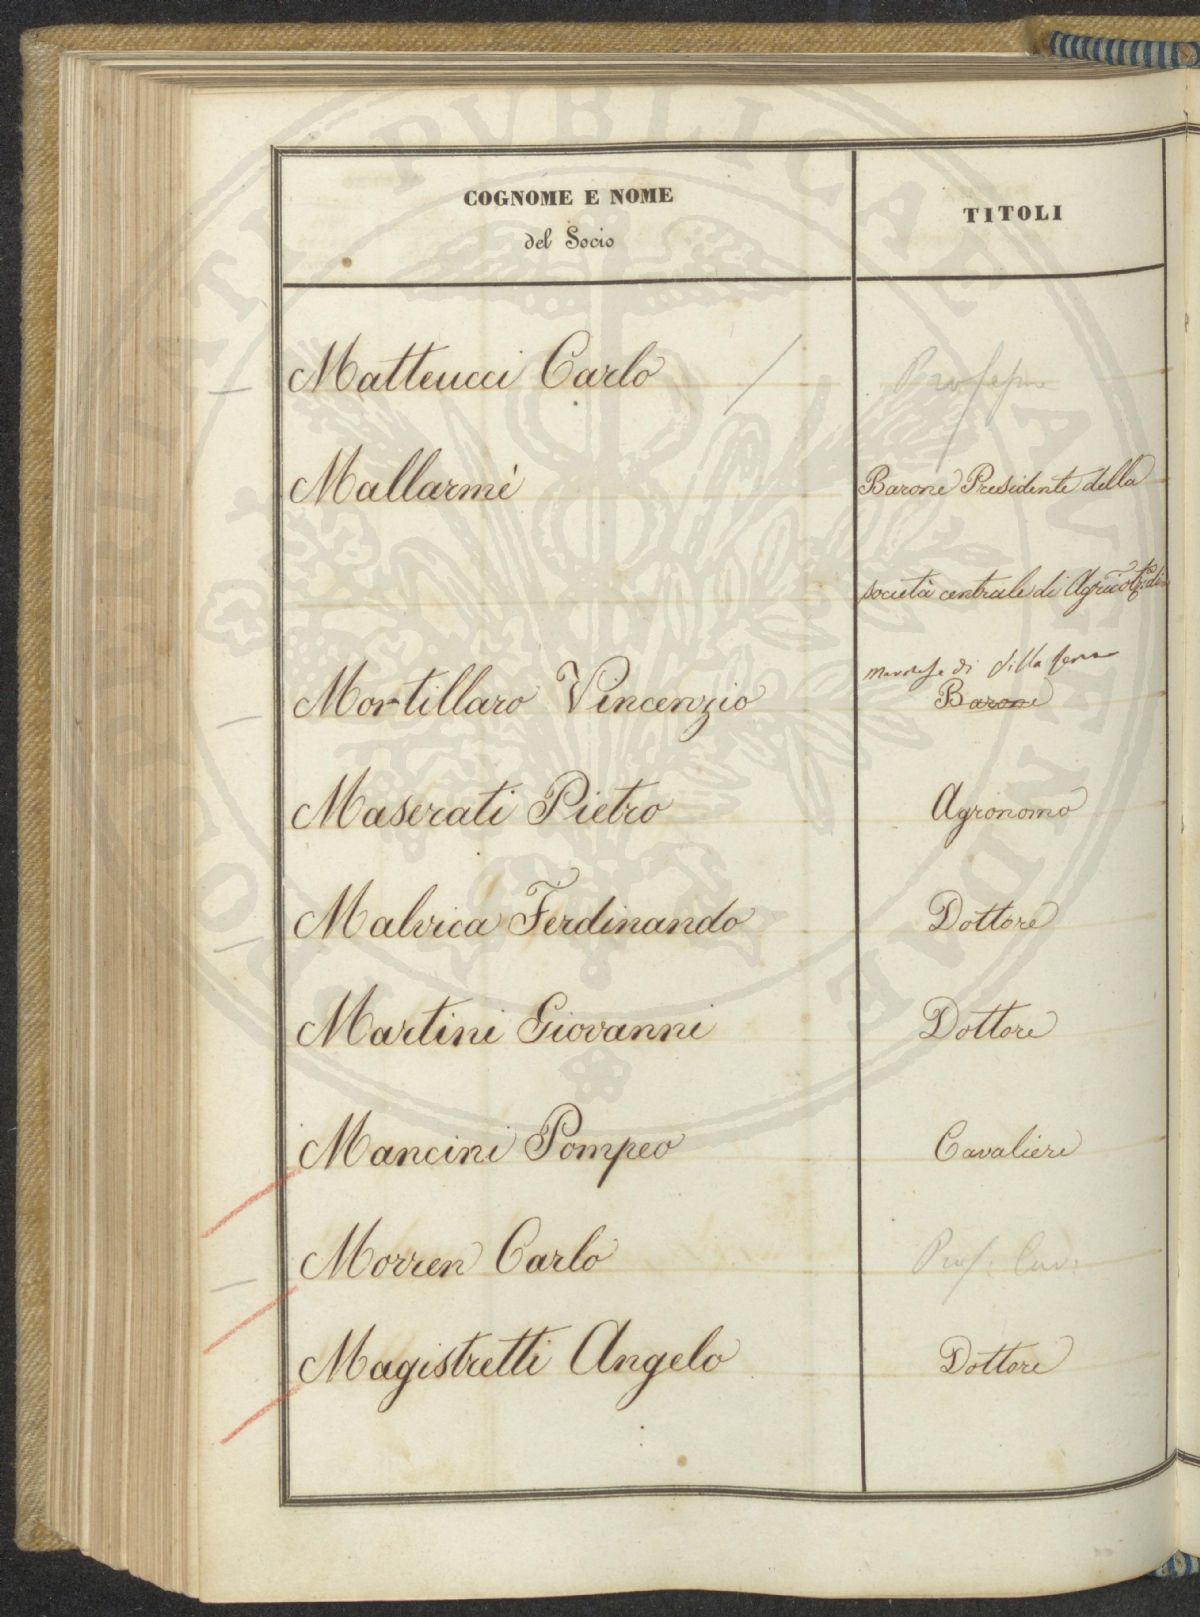 COGNOME E NOME
del Socio
TITOLI
Matteucci Carlo
Professore
Mallarmé
Barone Presidente della
società centrale di Agricolt.ra di
Mortillaro Vincenzio
Marchese di Villa
Barone
Maserati Pietro
Agronomo
Malvica Ferdinando
Dottore
Martini Giovanni
Dottore
Mancini Pompeo
Cavaliere
Morren Carlo
Prof. Cav.
Magistretti Angelo
Dottore